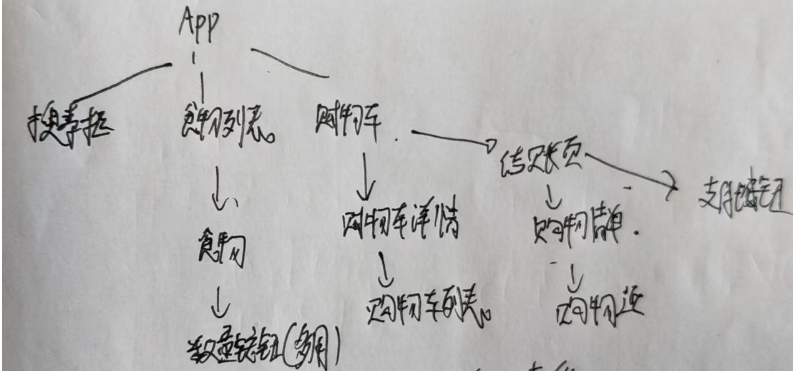 App
搜索框
食物列表。
购物车
结账页
支付按钮
食物
购物车详情
购物清单.
数量按钮(多用)
购物车列表。
购物项